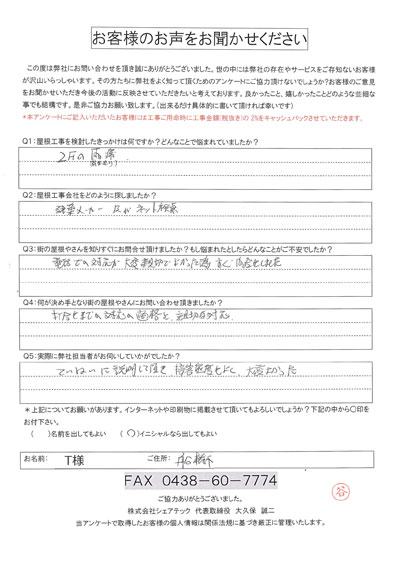 お客様のお声をお聞かせください
この度は弊社にお問い合わせを頂き誠にありがとうございました。世の中には弊社の存在やサービスをご存知ないお客様
が沢山いらっしゃいます。その方たちに弊社をよく知って頂くためのアンケートにご協力頂けないでしょうか?お客様のご意見
をお聞かせいただき今後の活動に反映させていただきたいと考えております。良かったこと、嬉しかったことどのような些細な
事でも結構です。是非ご協力お願い致します。(出来るだけ具体的に書いて頂ければ幸いです)
*本アンケートにご記入いただいたお客様には工事ご用命時に工事金額(税抜き)の2%をキャッシュバックさせていただきます。
Q1:屋根工事を検討したきっかけは何ですか?どんなことで悩まれていましたか?
2Fの
Q2:屋根工事会社をどのように探しましたか?
ネット検索
Q3:街の屋根やさんを知りすぐにお問合せ頂けましたか?もし悩まれたとしたらどんなことがご不安でしたか?
電話での対応が大変親切でよかった為すぐ
Q4:何が決め手となり街の屋根やさんにお問い合わせ頂きましたか?
対応
Q5:実際に弊社担当者がお伺いしていかがでしたか?
ていねいに説明して頂き 大変よかった
*上記についてお願いがあります。インターネットや印刷物に掲載させて頂いてもよろしいでしょうか?下記の中から〇印を
お付下さい。
( )名前を出してもよい (〇)イニシャルなら出してもよい
お名前: T様 ご住所: 船橋市
FAX 0438-60-7774
ご協力ありがとうございました。
株式会社シェアテック 代表取締役 大久保 誠二
当アンケートで取得したお客様の個人情報は関係法規に基づき厳正に管理いたします。